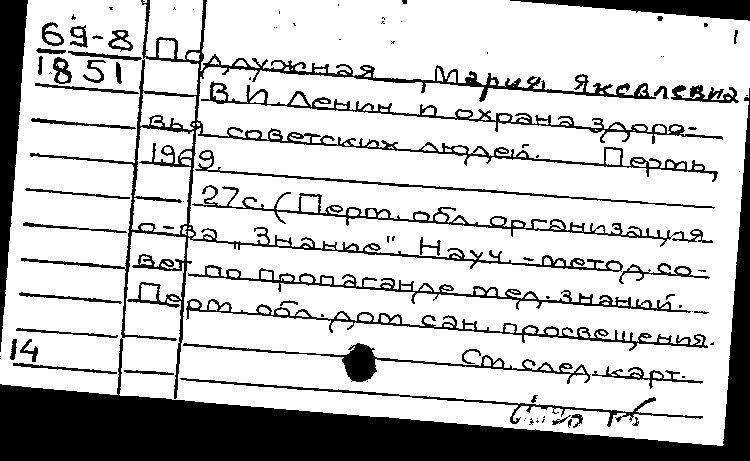 69-8
1851
Поддужная, Мария Яковлевна.
В.И. Ленин и охрана здоро-
вья советских людей. Пермь,
1969.
27с. (Перм. обл. организация
о-ва „Знание". Науч.-метод. со-
вет по пропаганде мед. знаний.
Перм. обл. дом сан. просвещения.
См. след. карт.
14